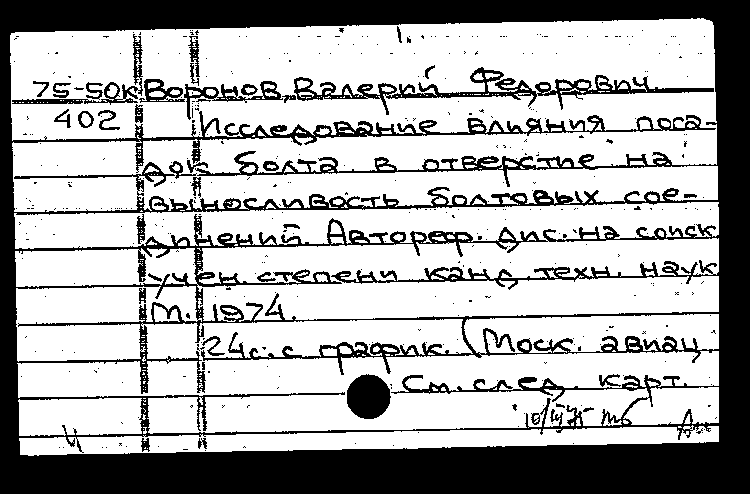 1.
75-50к Воронов, Валерий Федорович.
402 Исследование влияния поса-
док болта в отверстие на
выносливость болтовых сое-
динений. Автореф. дис. на соиск
учен. степени канд. техн. наук
М. 1974.
24с. с график. (Моск. авиац.
См. след. карт.